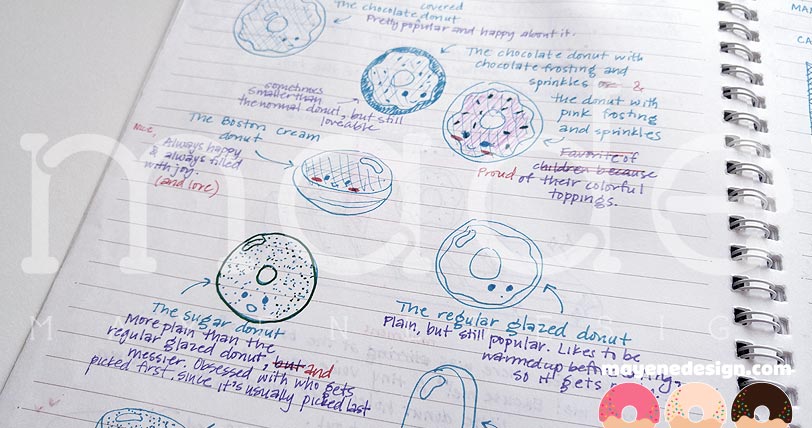 The chocolate covered
donut
Pretty popular and happy about it.
The chocolate donut with
chocolate frosting and
sprinkles or &
the donut with
pink frosting
and sprinkles
sometimes
smaller than
the normal donut, but still
loveable
The Boston Cream
donut
Nice,
Always happy
& always filled
with joy.
(and love)
Favorite of
children because
Proud of their colorful
toppings.
The sugar donut
More plain than the
regular glazed donut,
messier. but and Obsessed with who gets
picked first, since it's usually picked last
The regular glazed donut
Plain, but still popular. Likes to be
warmed up
so it gets
made
MAYENE DESIGN
mayenedesign.com
MAD